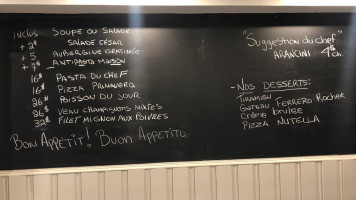 INCLUS SOUPE OU SALADE
+ 2$ SALADE CÉSAR
+ 5$ AUBERGINE GRATINÉE
+ 9$ ANTIPASTO MAISON
16$ PASTA DU CHEF
16$ PIZZA PRIMAVERA
26$ POISSON DU JOUR
26$ VEAU CHAMPIGNONS MIXTES
32$ FILET MIGNON AUX POIVRES
BON APPÉTIT! BUON APPETITO
"Suggestion du chef"
ARANCINI 4$ ch.
- NOS DESSERTS:
TIRAMISU
Gateau FERRERO Rocher
Crème brulee
PIZZA NUTELLA